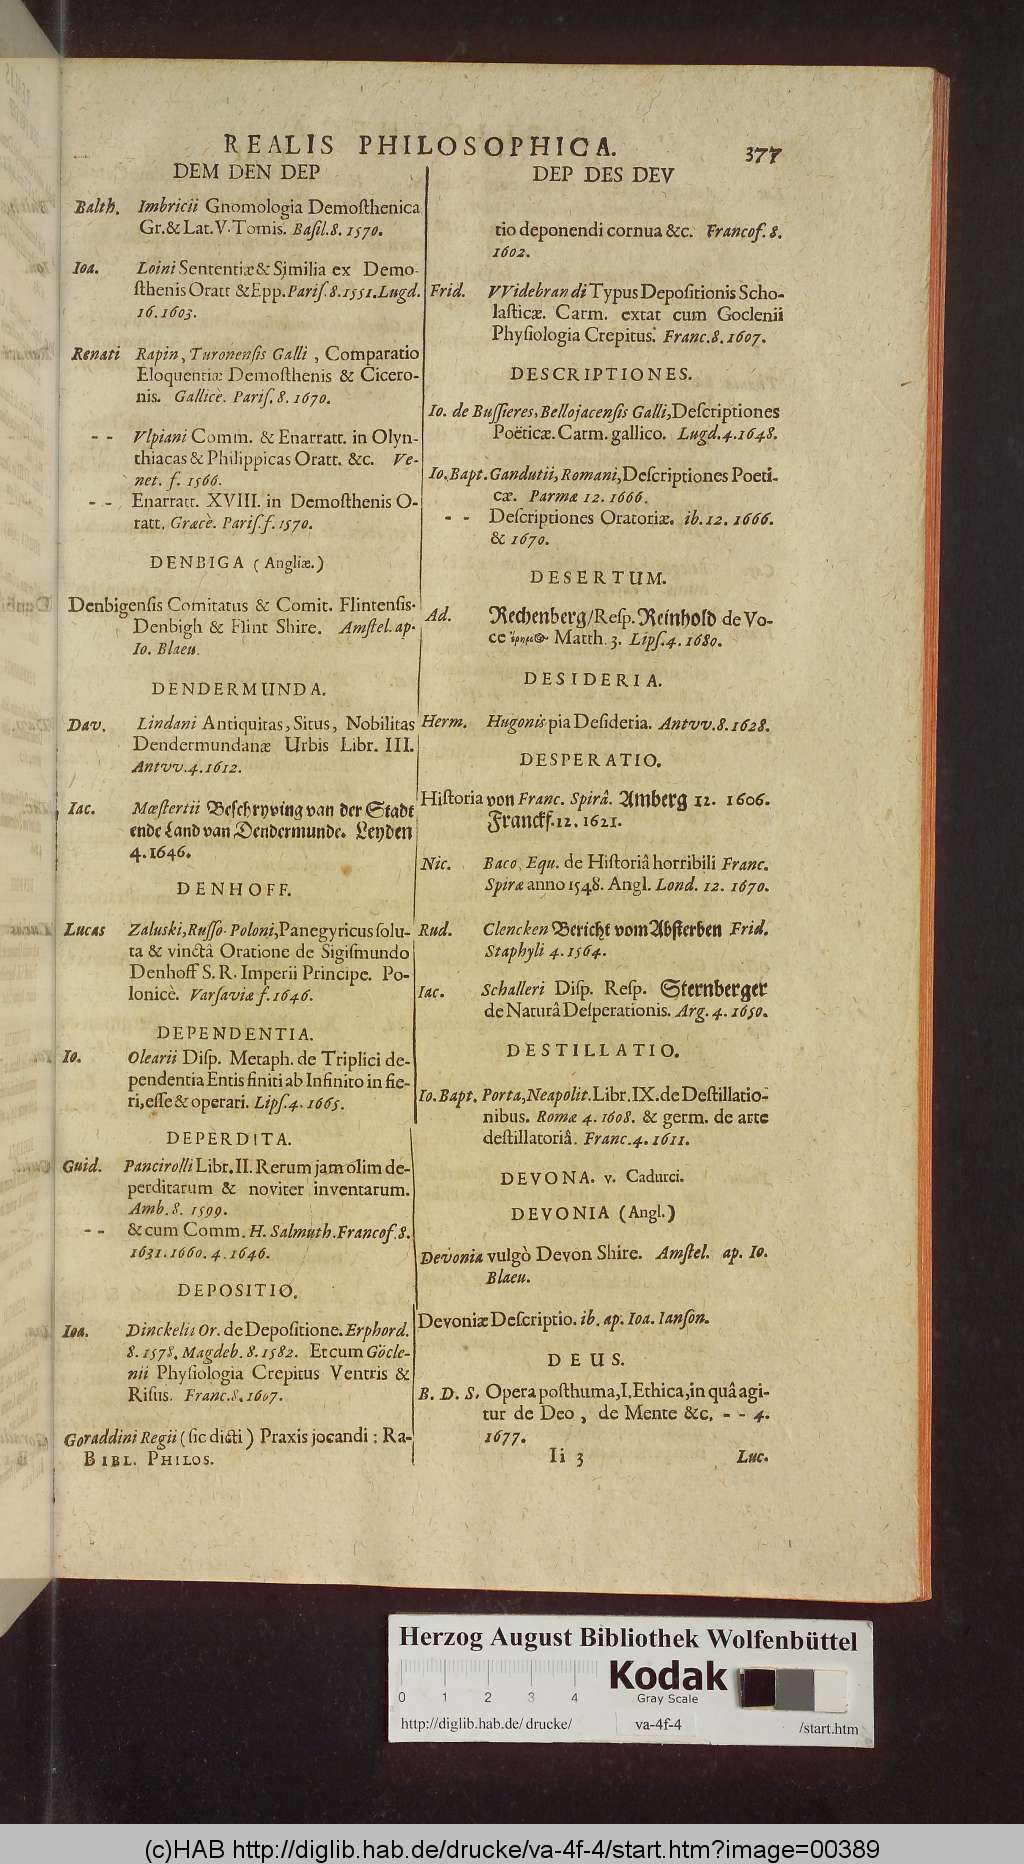 REALIS PHILOSOPHICA. 377
DEM DEN DEP
Balth. Imbricii Gnomologia Demoſthenica
Gr.& Lat. V. Tomis. Baſil. 8. 1570.
Ioa. Loini Sententiæ & Similia ex Demo-
ſthenis Oratt & Epp. Pariſ. 8. 1551. Lugd.
16. 1603.
Renati Rapin, Turonenſis Galli, Comparatio
Eloquentiæ Demoſthenis & Cicero-
nis. Gallicè. Pariſ. 8. 1670.
- - Vlpiani Comm. & Enarratt. in Olyn-
thiacas & Philippicas Oratt. &c. Ve-
net. f. 1566.
- - Enarratt. XVIII. in Demoſthenis O-
ratt. Græcè. Pariſ. f. 1570.
DENBIGA (Angliæ.)
Denbigenſis Comitatus & Comit. Flintenſis.
Denbigh & Flint Shire. Amſtel. ap.
Io. Blaeu.
DENDERMUNDA.
Dav. Lindani Antiquitas, Situs, Nobilitas
Dendermundanæ Urbis Libr. III.
Antvv. 4. 1612.
Iac. Mæſtertii Beſchryving van der Stadt
ende Land van Dendermunde. Leyden
4. 1646.
DENHOFF.
Lucas Zaluski, Ruſſo-Poloni, Panegyricus ſolu-
ta & vinctâ Oratione de Sigiſmundo
Denhoff S. R. Imperii Principe. Po-
lonicè. Varſaviæ f. 1646.
DEPENDENTIA.
Io. Olearii Diſp. Metaph. de Triplici de-
pendentia Entis finiti ab Infinito in fie-
ri, eſſe & operari. Lipſ. 4. 1665.
DEPERDITA.
Guid. Pancirolli Libr. II. Rerum jam olim de-
perditarum & noviter inventarum.
Amb. 8. 1599.
- - & cum Comm. H. Salmuth. Francof. 8.
1631. 1660. 4. 1646.
DEPOSITIO.
Ioa. Dinckelii Or. de Depoſitione. Erphord.
8. 1578. Magdeb. 8. 1582. Et cum Gocle-
nii Phyſiologia Crepitus Ventris &
Riſus. Franc. 8. 1607.
Goraddini Regii (ſic dicti) Praxis jocandi: Ra-
BIBL. PHILOS.
DEP DES DEV
tio deponendi cornua &c. Francof. 8.
1602.
Frid. VVidebrandi Typus Depoſitionis Scho-
laſticæ. Carm. extat cum Goclenii
Phyſiologia Crepitus. Franc. 8. 1607.
DESCRIPTIONES.
Io. de Buſſieres, Bellojacenſis Galli, Deſcriptiones
Poëticæ. Carm. gallico. Lugd. 4. 1648.
Io. Bapt. Gandutii, Romani, Deſcriptiones Poeti-
cæ. Parmæ 12. 1666.
- - Deſcriptiones Oratoriæ. ib. 12. 1666.
& 1670.
DESERTUM.
Ad. Rechenberg/Reſp. Reinhold de Vo-
ce Matth. 3. Lipſ. 4. 1680.
DESIDERIA.
Herm. Hugonis pia Deſideria. Antvv. 8. 1628.
DESPERATIO.
Hiſtoria von Franc. Spirâ. Amberg 12. 1606.
Franckf. 12. 1621.
Nic. Baco, Equ. de Hiſtoriâ horribili Franc.
Spiræ anno 1548. Angl. Lond. 12. 1670.
Rud. Clencken Bericht vom Abſterben Frid.
Staphyli 4. 1564.
Iac. Schalleri Diſp. Reſp. Sternberger
de Naturâ Deſperationis. Arg. 4. 1650.
DESTILLATIO.
Io. Bapt. Porta, Neapolit. Libr. IX. de Deſtillatio-
nibus. Romæ 4. 1608. & germ. de arte
deſtillatoriâ. Franc. 4. 1611.
DEVONA. v. Cadurci.
DEVONIA (Angl.)
Devonia vulgò Devon Shire. Amſtel. ap. Io.
Blaeu.
Devoniæ Deſcriptio. ib. ap. Ioa. Ianſon.
DEUS.
B. D. S. Opera poſthuma, I, Ethica, in quâ agi-
tur de Deo, de Mente &c. - - 4.
1677.
Ii 3 Luc.
Herzog August Bibliothek Wolfenbüttel
Kodak
Gray Scale
0 1 2 3 4
http://diglib.hab.de/drucke/ va-4f-4 /start.htm
(c)HAB http://diglib.hab.de/drucke/va-4f-4/start.htm?image=00389